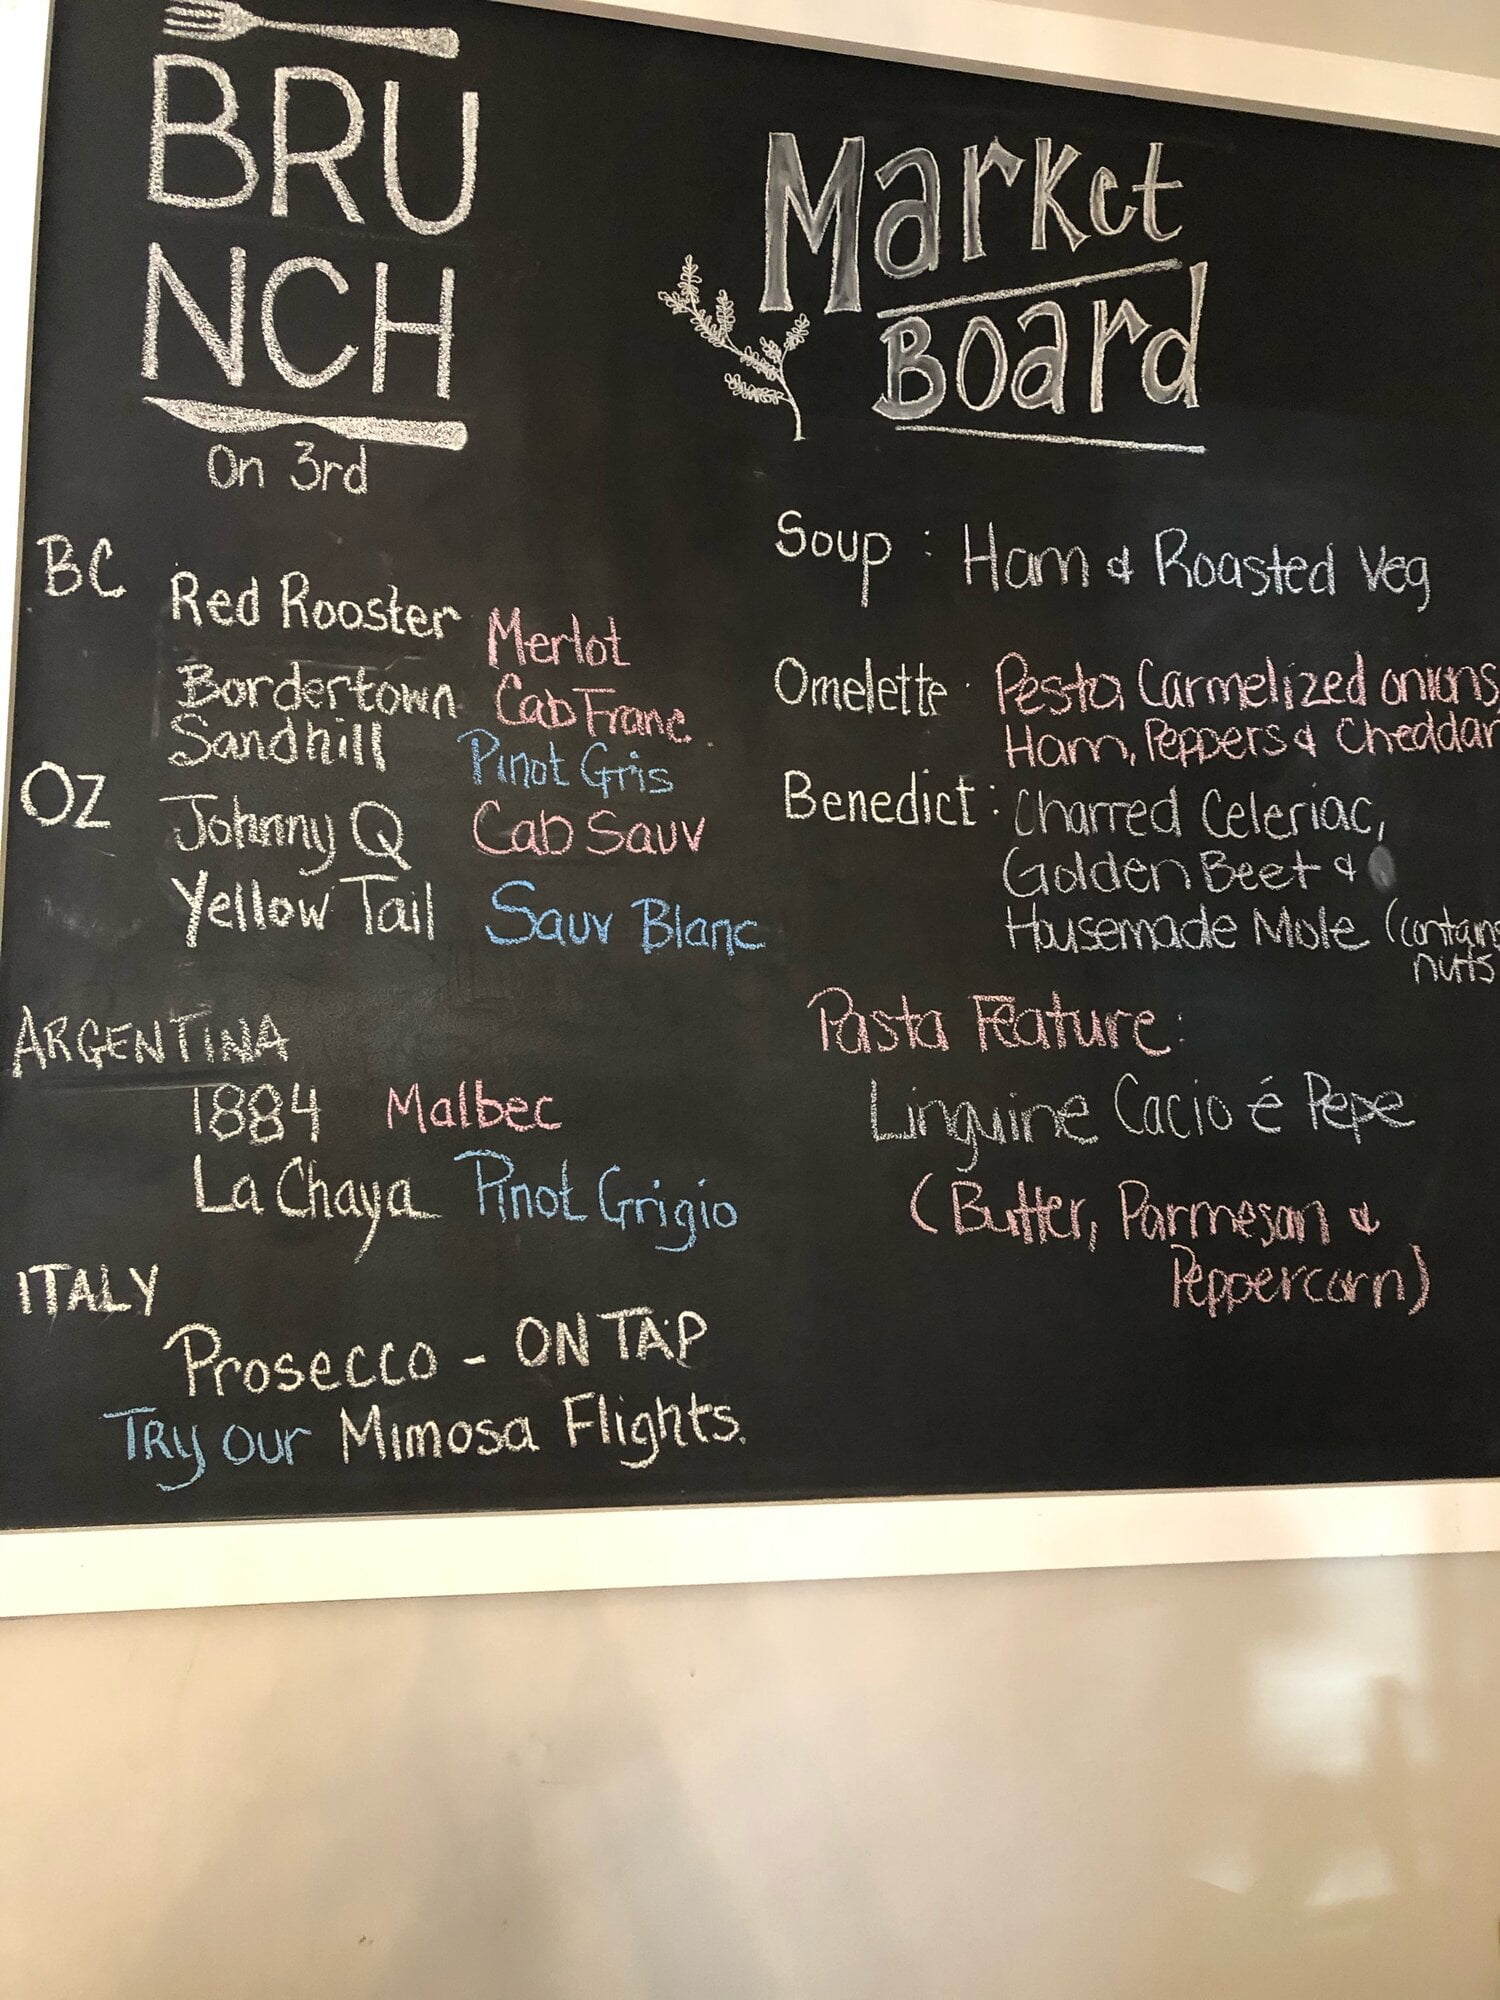 BRU
NCH
On 3rd
BC
Red Rooster Merlot
Bordertown Cab Franc
Sandhill Pinot Gris
OZ
Johnny Q Cab Sauv
Yellow Tail Sauv Blanc
ARGENTINA
1884 Malbec
La Chaya Pinot Grigio
ITALY
Prosecco - ON TAP
Try our Mimosa Flights.
Market
Board
Soup : Ham & Roasted Veg
Omelette : Pesto, Carmelized onions,
Ham, Peppers & Cheddar
Benedict : Charred Celeriac,
Golden Beet &
Housemade Mole (contains
nuts
Pasta Feature:
Linguine Cacio é Pepe
(Butter, Parmesan &
Peppercorn)